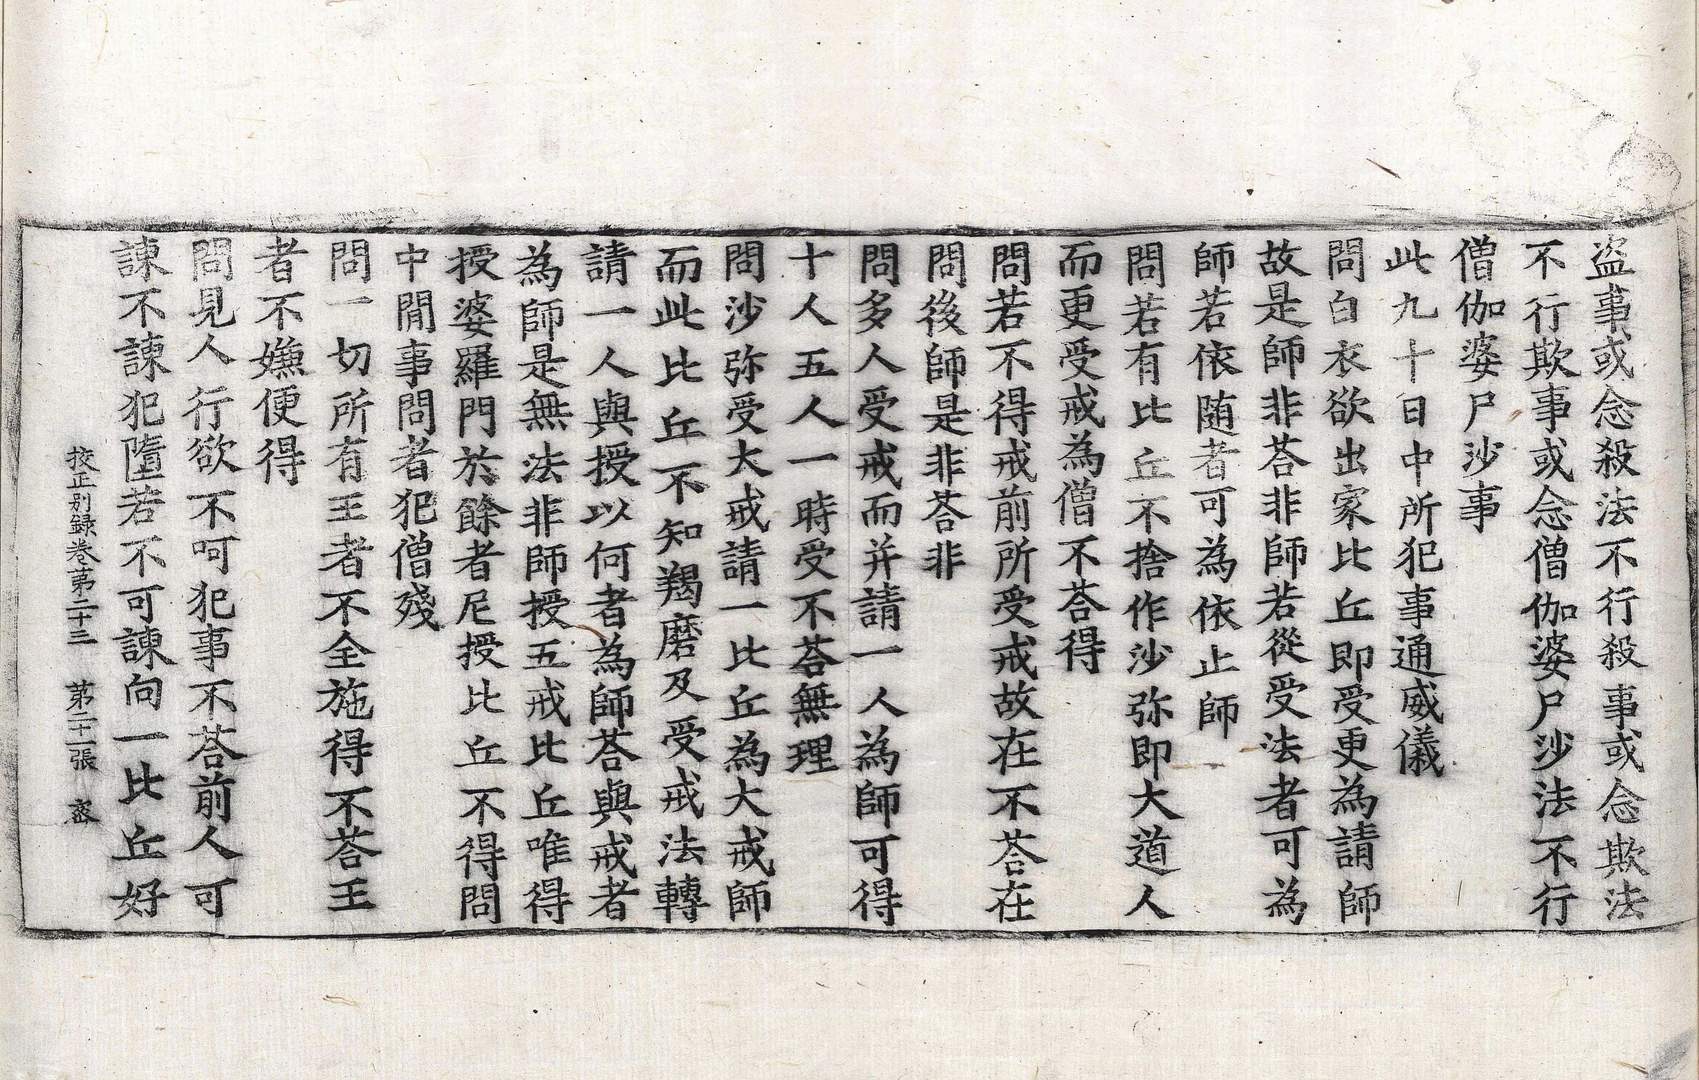 盗事或念殺法不行殺事或念欺法
不行欺事或念僧伽婆尸沙法不行
僧伽婆尸沙事
此九十日中所犯事通威儀
問白衣欲出家比丘即受更為請師
故是師非荅非師若從受法者可為
師若依随者可為依止師
問若有比丘不捨作沙弥即大道人
而更受戒為僧不荅得
問若不得戒前所受戒故在不荅在
問後師是非荅非
問多人受戒而并請一人為師可得
十人五人一時受不荅無理
問沙弥受大戒請一比丘為大戒師
而此比丘不知羯磨及受戒法轉
請一人與授以何者為師荅與戒者
為師是無法非師授五戒比丘唯得
授婆羅門於餘者尼授比丘不得問
中間事問者犯僧殘
問一切所有王者不全施得不荅王
者不嫌便得
問見人行欲不呵犯事不荅前人可
諫不諫犯墮若不可諫向一比丘好
挍正別録卷苐二十三　苐二十一張　宻